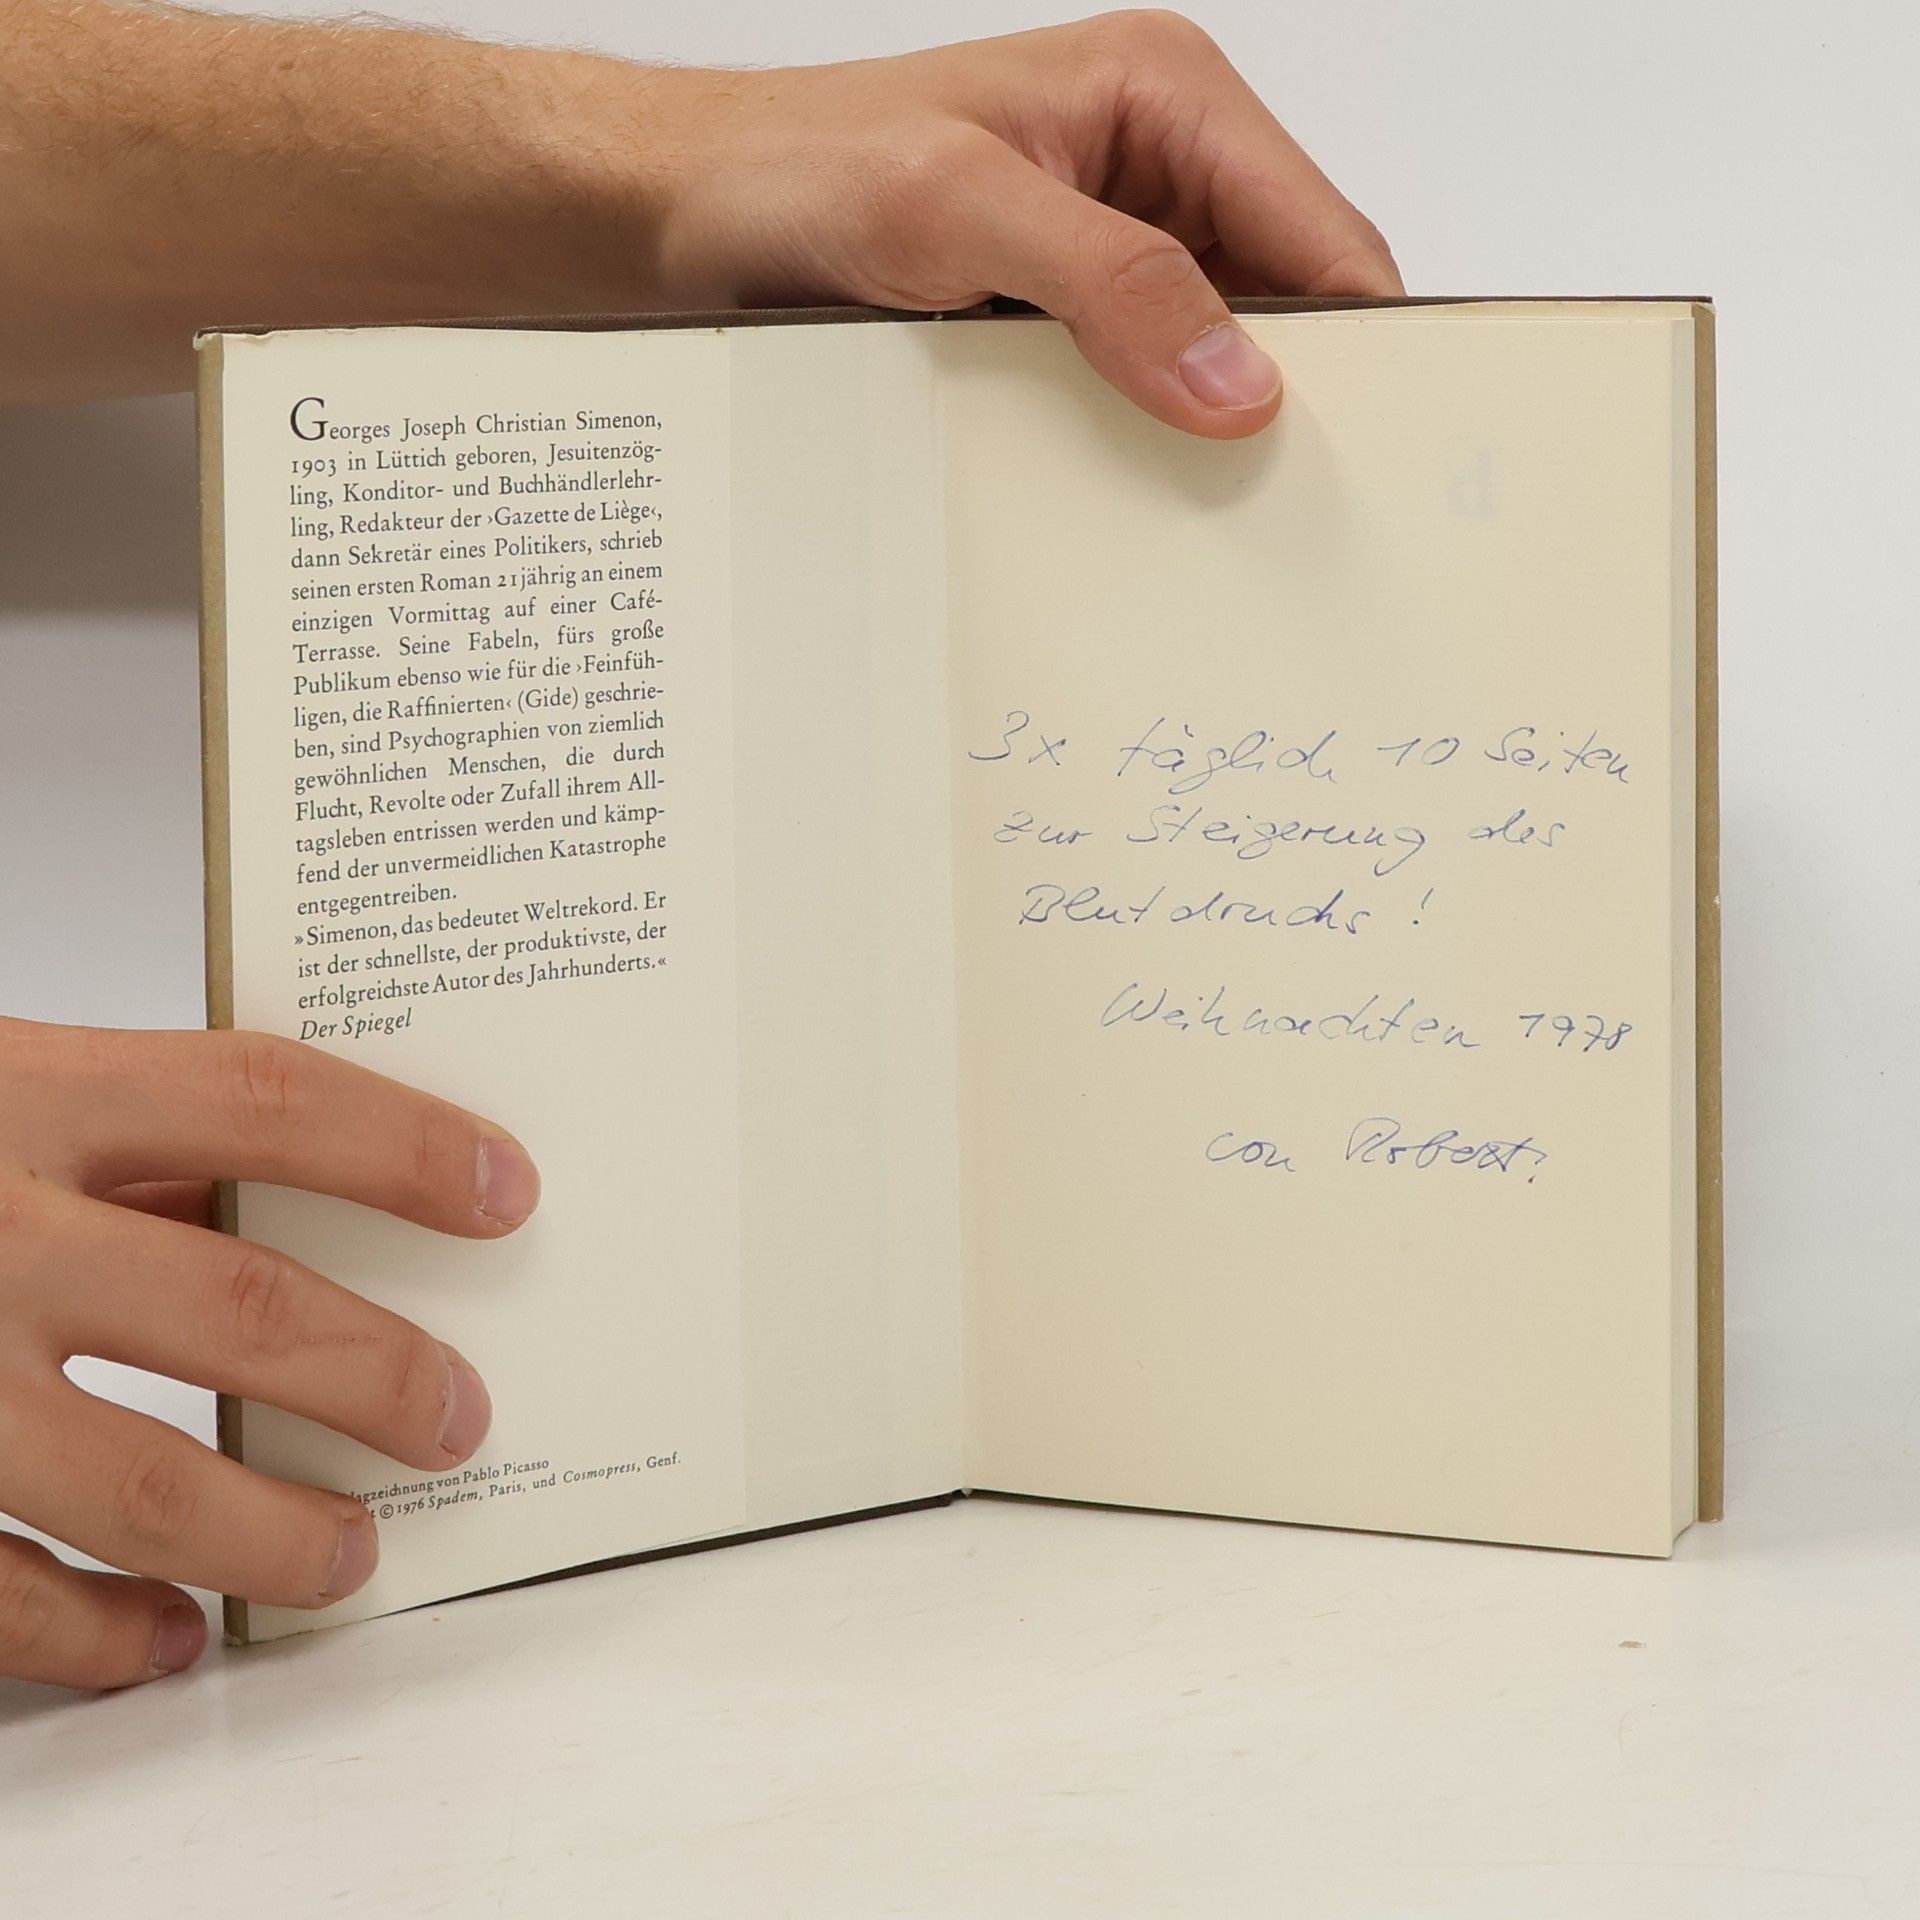 Georges Joseph Christian Simenon,
1903 in Lüttich geboren, Jesuitenzög-
ling, Konditor- und Buchhändlerlehr-
ling, Redakteur der ›Gazette de Liège‹,
dann Sekretär eines Politikers, schrieb
seinen ersten Roman 21jährig an einem
einzigen Vormittag auf einer Café-
Terrasse. Seine Fabeln, fürs große
Publikum ebenso wie für die ›Feinfüh-
ligen, die Raffinierten‹ (Gide) geschrie-
ben, sind Psychographien von ziemlich
gewöhnlichen Menschen, die durch
Flucht, Revolte oder Zufall ihrem All-
tagsleben entrissen werden und kämp-
fend der unvermeidlichen Katastrophe
entgegentreiben.
»Simenon, das bedeutet Weltrekord. Er
ist der schnellste, der produktivste, der
erfolgreichste Autor des Jahrhunderts.«
Der Spiegel
von Pablo Picasso
© 1976 Spadem, Paris, und Cosmopress, Genf.
3x täglich 10 Seiten
zur Steigerung des
Blutdrucks !
Weihnachten 1978
von Robert!